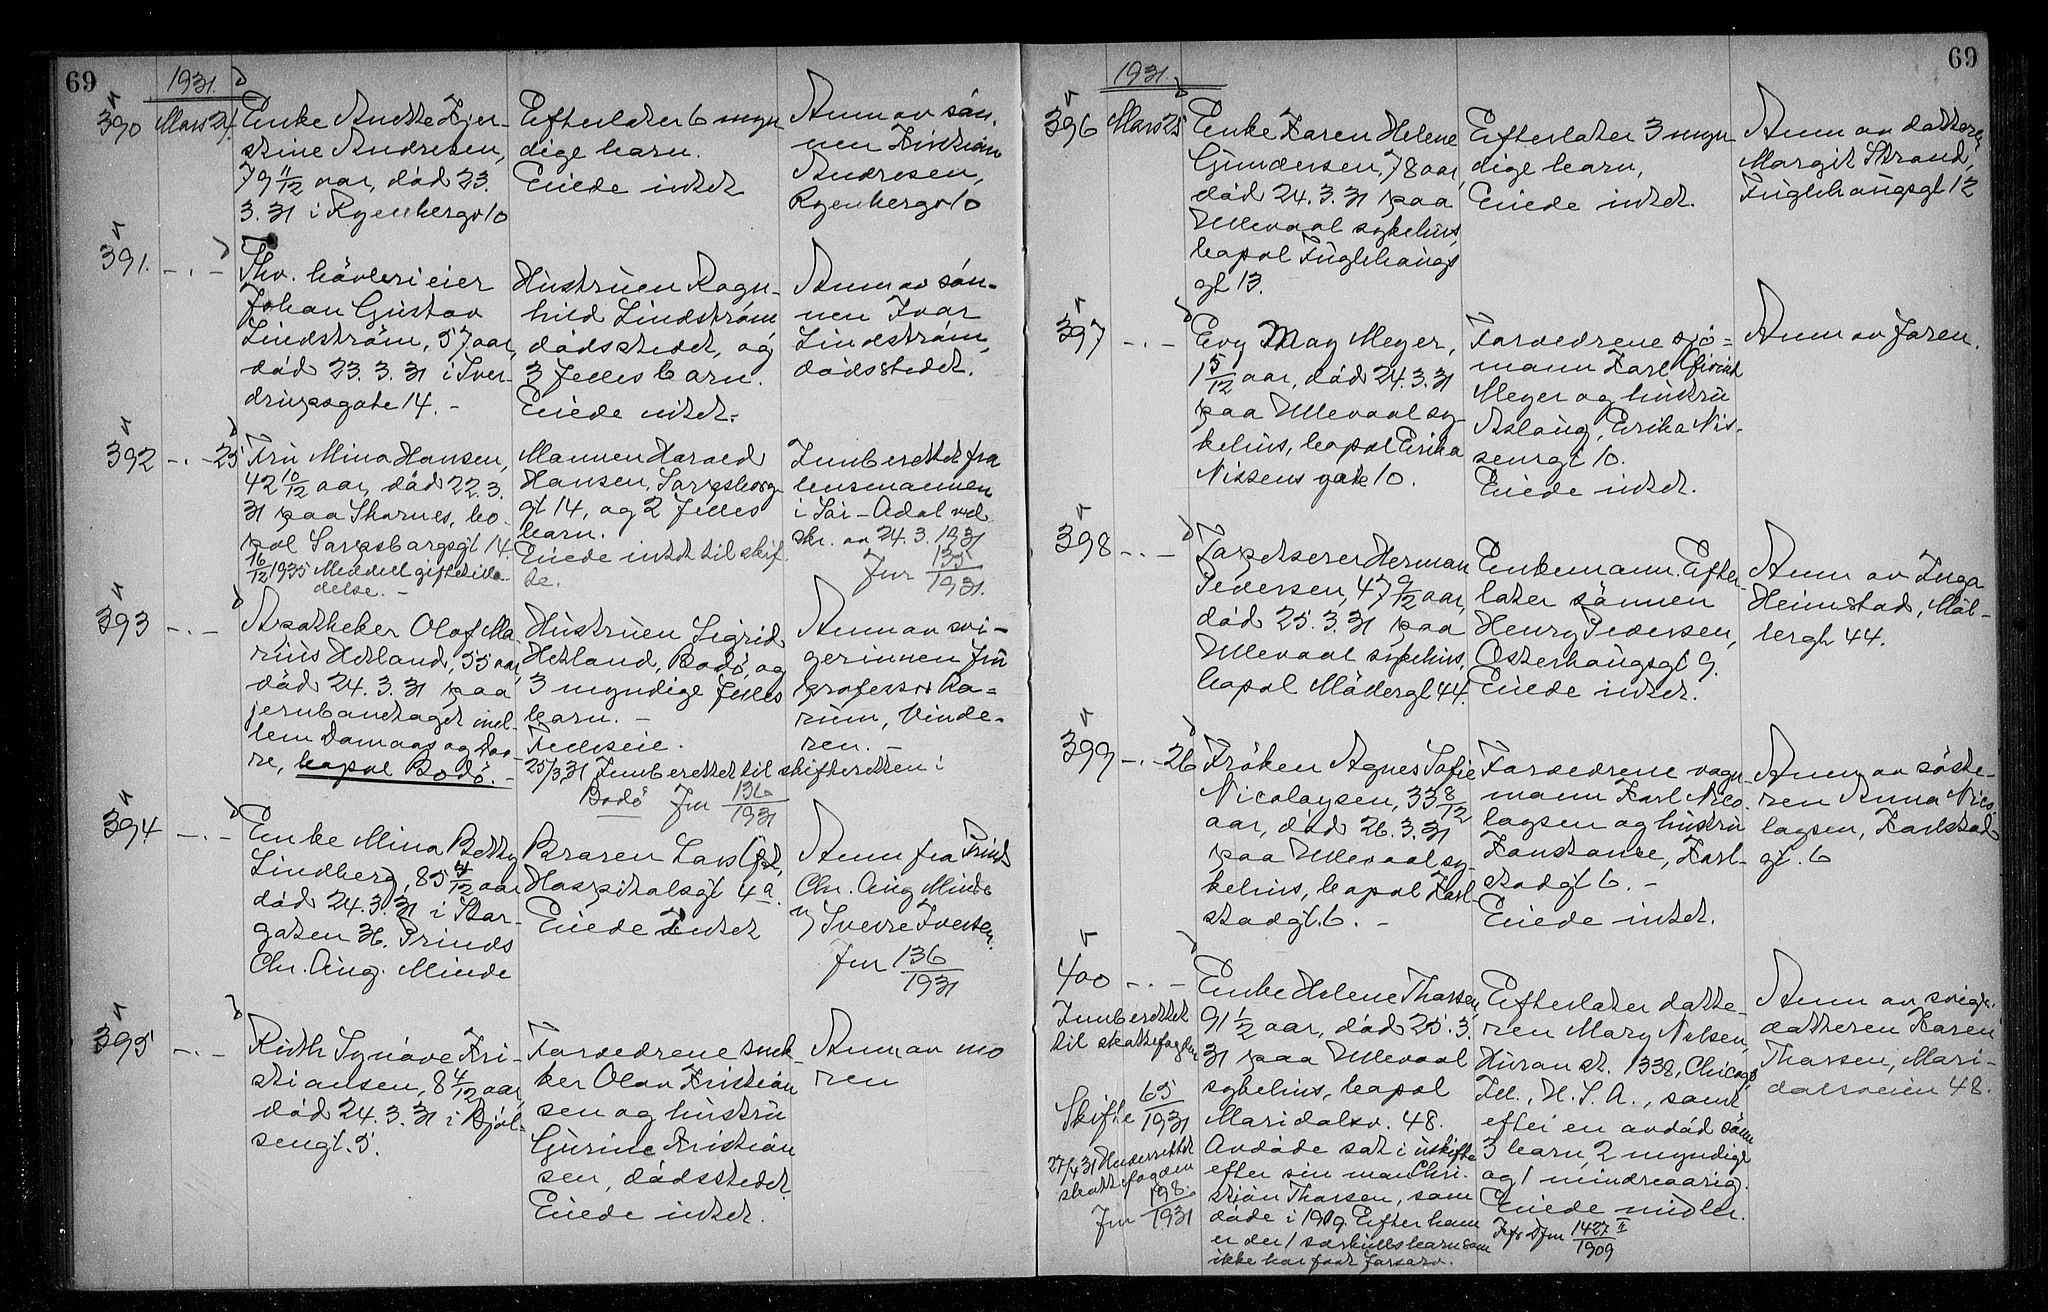 69
1931.
390 Mars 24.
Enke Anette Kjer-
stine Andresen,
79 11/12 aar, död 23.
3.31 i Ryenbergv 10
Efterlater 6 myn
dige barn.
Eiede intet
Anm av sön-
nen Kristian
Andresen,
Ryenbergv 10
391. -.-
Thv. hövleri eier
Johan Gustav
Lindström, 57 aar,
död 23.3.31 i Sver-
drupsgate 14.-
Hustruen Ragn-
hild Lindström
dödsstedet, og
3 felles barn.
Eiede intet.
Anm av sön-
nen Ivar
Lindström,
dödsstedet.
392 -.- 25
Fru Mina Hansen,
42 10/12 aar, död 22.3.
31 paa Skarnes, bo-
pæl Sarpsborgsgt 14.
16/12 1935 Meddelt giftetilla-
delse.-
Mannen Harald
Hansen, Sarpsborg
gt 14, og 2 felles
barn.
Eiede intet til skif
te.
Innberettet fra
lensmannen
i Sör-Odal ved
skr. av 24.3.1931
Jnr 135/1931.
393 -.-
Apotheker Olaf Ma
rius Hetland, 55 aar,
död 24.3.31 paa
jernbanetoget mel-
lem Domaas og Dov-
re, bopæl Bodö.-
Hustruen Sigrid
Hetland, Bodö, og
3 myndige felles
barn.-
Felleseie.
25/3 31 Innberettet til skifteretten i
Bodö Jnr 136/1931
Anm av svi-
gerinnen fru
professor
Vinde-
ren.-
394 -.-
Enke Mina Betty
Lindberg, 85 4/12 aar
död 24.3.31 i Stor-
gaten 36. Prinds
Chr. Aug. Minde
Broren Lars
Hospitalsgt 4a.
Eiede intet
Anm fra Prinds
Chr. Aug Minde
v/ Sverre Iversen.
Jnr 136/1931
395 -.-
Ruth Synöve Kri-
stiansen, 8 4/12 aar,
död 24.3.31 i Bjöl-
sengt. 5.
Forældrene snek-
ker Olav Kristian
sen og hustru
Gurine Kristian
sen, dödsstedet.
Eiede intet.
Anm av mo
ren
69
1931.
396 Mars 25
Enke Karen Helene
Gundersen, 78 aar,
död 24.3.31 paa
Ullevaal sykehus,
bopæl Fuglehaugs
gt 13.
Efterlater 3 myn
dige barn.
Eiede intet.
Anm av datteren
Margit Strand,
Fuglehaugsgt 12
397 -.-
Evy May Meyer,
1 5/12 aar, död 24.3.31
paa Ullevaal sy-
kehus, bopæl Erika
Nissens gate 10.
Forældrene sjö-
mann Karl Eivind
Meyer og hustru
Aslaug, Erika Nis-
sensgt 10.
Eiede intet.
Anm av faren.
398 -.-
Tapetserer Herman
Pedersen, 47 9/12 aar,
död 25.3.31 paa
Ullevaal sykehus,
bopæl gt 44.
Enkemann. Efter-
later sönnen
Henry Pedersen,
Osterhaugsgt 9.
Eiede intet.
Anm av Inga
Heimstad,
44.
399 -.- 26
Fröken Agnes Sofie
Nicolaysen, 33 8/12
aar, död 26.3.31
paa Ullevaal sy-
kehus, bopæl Karl-
stadgt. 6.-
Forældrene vogn-
mann Karl Nico
laysen og hustru
Konstanse, Karl-
stadgt 6.-
Eiede intet.
Anm av söste-
ren Anna Nico
laysen, Karlstad
gt. 6
400 -.-
Innberettet
til skattefogden
Skifte 65/1931
27/4 31 Underrettet
skattefogden
Jnr 198./1931
Enke Helene Thorsen,
91 1/2 aar, död 25.3.
31 paa Ullevaal
sykehus, bopæl
Maridalsv. 48.
Avdöde sat i uskifte
efter sin man Chri-
stian Thorsen, som
döde i 1909. Efter ham
er der 1 særkullsbarn som
ikke har faat farsarv.
Efterlater datte-
ren Mary Nelsen,
Huron st. 1338, Chicago,
Ill., U.S.A., samt
efter en avdöd sönn
3 barn, 2 myndige
og 1 mindreaarig.
Eiede midler.
Jfr. Jnr 1427 II/1909
Anm av sviger-
datteren Karen
Thorsen, Mari-
dalsveien 48.